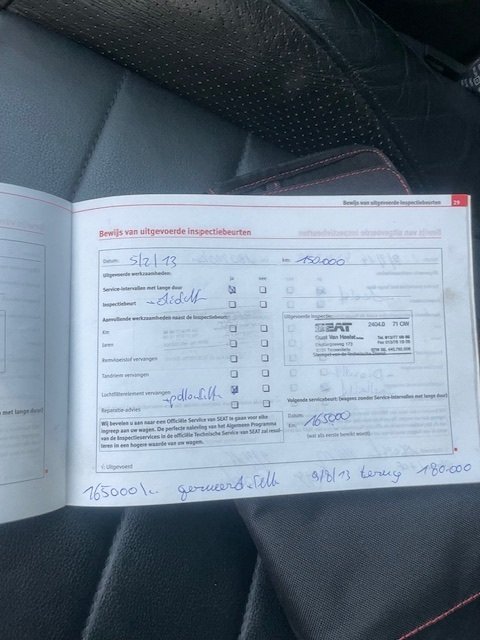 Bewijs van uitgevoerde inspectiebeurten 29
Bewijs van uitgevoerde inspectiebeurten
Datum: 5/2/13 km: 150.000
Uitgevoerde werkzaamheden: ja nee
Service-intervallen met lange duur
Inspectiebeurt
Aanvullende werkzaamheden naast de inspectiebeurt:
Km
Jaren
Remvloeistof vervangen
Tandriem vervangen
Luchtfilterelement vervangen
Reparatie-advies
Uitgevoerde inspectie:
SEAT 2404.0 71 CW
Gust Van Heelst
Stempel van de Technische Dienst
Volgende servicebeurt: (wagens zonder Service-intervallen met lange duur)
Datum:
Km: 165000
(wat als eerste bereikt wordt)
Wij bevelen u aan naar een Officiële Service van SEAT te gaan voor elke
ingreep aan uw wagen. De perfecte naleving van het Algemene Programma
van de Inspectieservices in de officiële Technische Service van SEAT zal resul-
teren in een hogere waarde van uw wagen.
√: Uitgevoerd
165000 9/8/13 terug 180.000